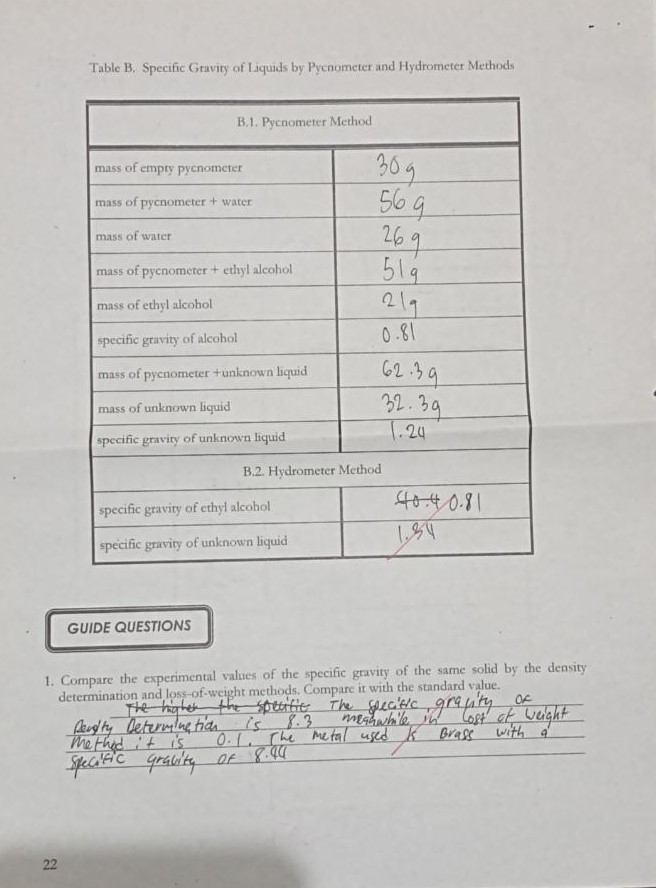 Table B. Specific Gravity of Liquids by Pycnometer and Hydrometer Methods
B.1. Pycnometer Method
mass of empty pycnometer 30 g
mass of pycnometer + water 56 g
mass of water 26 g
mass of pycnometer + ethyl alcohol 51 g
mass of ethyl alcohol 21 g
specific gravity of alcohol 0.81
mass of pycnometer +unknown liquid 62.3 g
mass of unknown liquid 32.3 g
specific gravity of unknown liquid 1.24
B.2. Hydrometer Method
specific gravity of ethyl alcohol 40.4 0.81
specific gravity of unknown liquid 1.34
GUIDE QUESTIONS
1. Compare the experimental values of the specific gravity of the same solid by the density
determination and loss-of-weight methods. Compare it with the standard value.
The higher the specific The specific gravity of
Density Determination is 8.3 meanwhile in Lost of weight
Method it is 0.1. The metal used is Brass with a
Specific gravity of 8.44
22